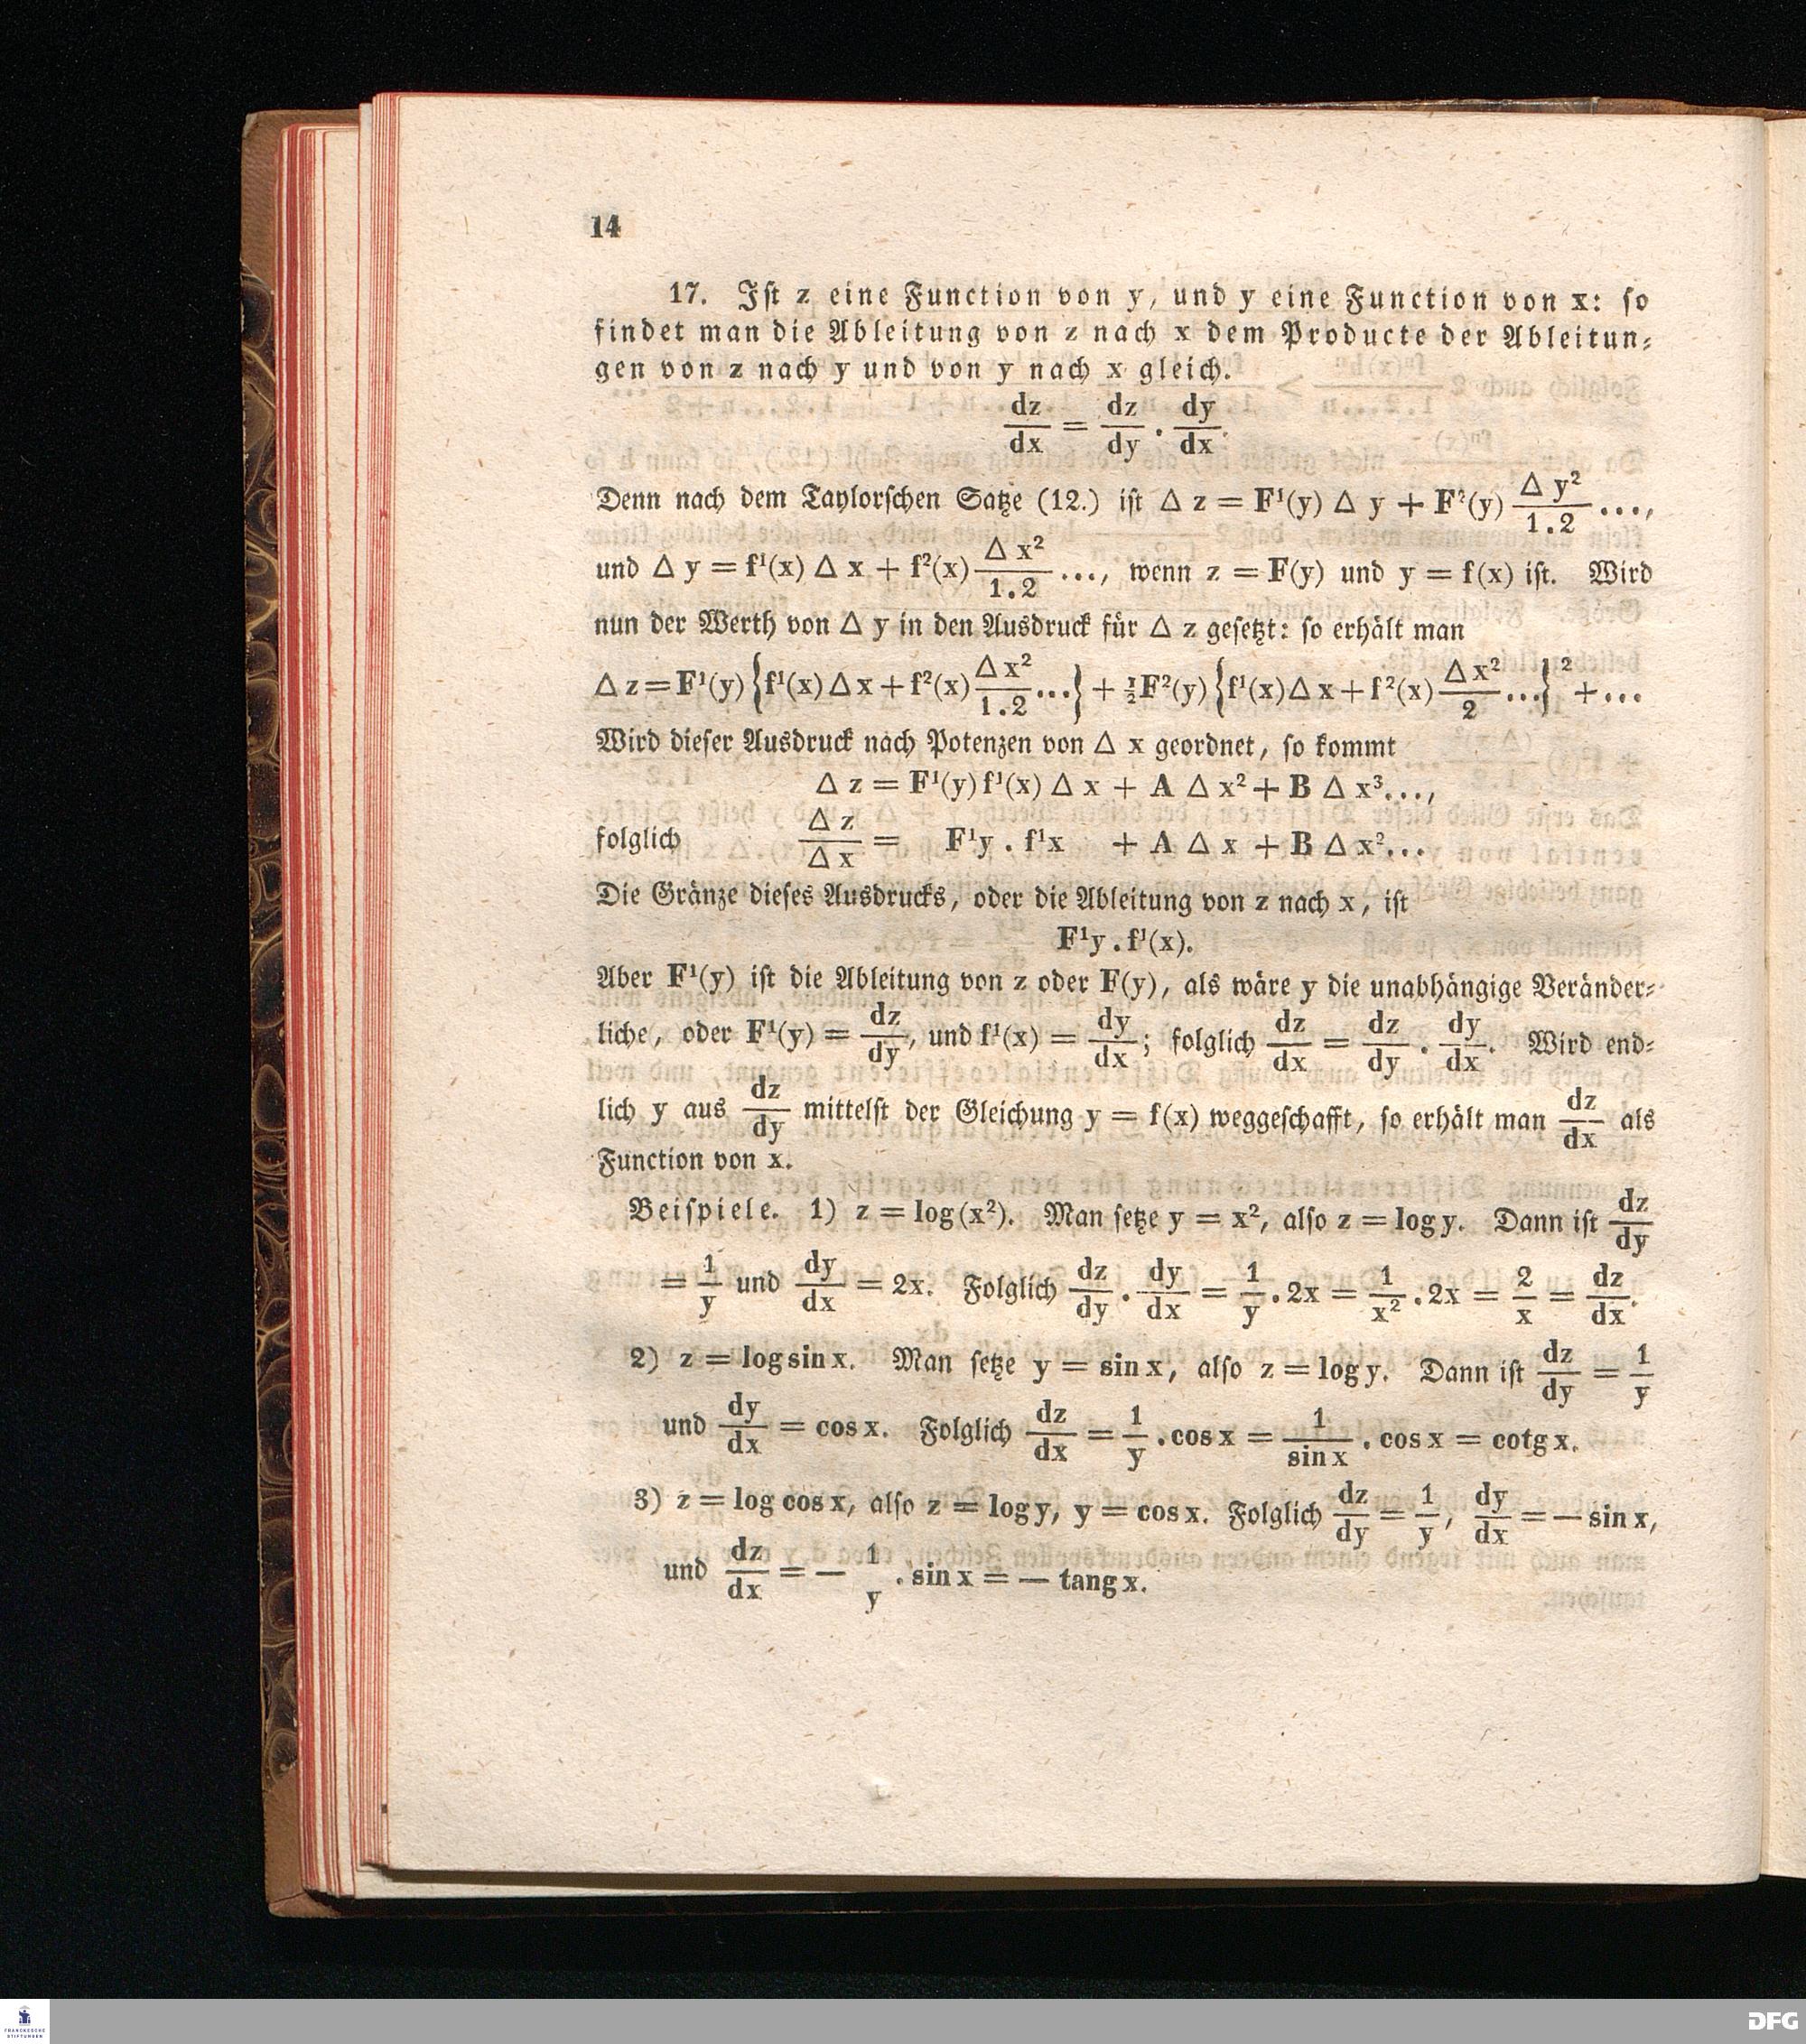 14
17. Ist z eine Function von y, und y eine Function von x: so
findet man die Ableitung von z nach x dem Producte der Ableitun-
gen von z nach y und von y nach x gleich.
dz/dx = dz/dy . dy/dx.
Denn nach dem Taylorschen Satze (12.) ist Δ z = F¹(y) Δ y + F²(y) Δ y²/1.2 ...,
und Δ y = f¹(x) Δ x + f²(x) Δ x²/1.2 ..., wenn z = F(y) und y = f(x) ist. Wird
nun der Werth von Δ y in den Ausdruck für Δ z gesetzt: so erhält man
Δ z = F¹(y) {f¹(x) Δ x + f²(x) Δ x²/1.2 ...} + ½F²(y) {f¹(x) Δ x + f²(x) Δ x²/2 ...}² + ...
Wird dieser Ausdruck nach Potenzen von Δ x geordnet, so kommt
Δ z = F¹(y) f¹(x) Δ x + A Δ x² + B Δ x³...,
folglich Δ z/Δ x = F¹y . f¹x + A Δ x + B Δ x²...
Die Gränze dieses Ausdrucks, oder die Ableitung von z nach x, ist
F¹y . f¹(x).
Aber F¹(y) ist die Ableitung von z oder F(y), als wäre y die unabhängige Veränder-
liche, oder F¹(y) = dz/dy, und f¹(x) = dy/dx; folglich dz/dx = dz/dy . dy/dx. Wird end-
lich y aus dz/dy mittelst der Gleichung y = f(x) weggeschafft, so erhält man dz/dx als
Function von x.
Beispiele. 1) z = log (x²). Man setze y = x², also z = log y. Dann ist dz/dy
= 1/y und dy/dx = 2x. Folglich dz/dy . dy/dx = 1/y . 2x = 1/x² . 2x = 2/x = dz/dx.
2) z = log sin x. Man setze y = sin x, also z = log y. Dann ist dz/dy = 1/y
und dy/dx = cos x. Folglich dz/dx = 1/y . cos x = 1/sin x . cos x = cotg x.
3) z = log cos x, also z = log y, y = cos x. Folglich dz/dy = 1/y, dy/dx = — sin x,
und dz/dx = — 1/y . sin x = — tang x.
FRANCKESCHE
STIFTUNGEN
DFG